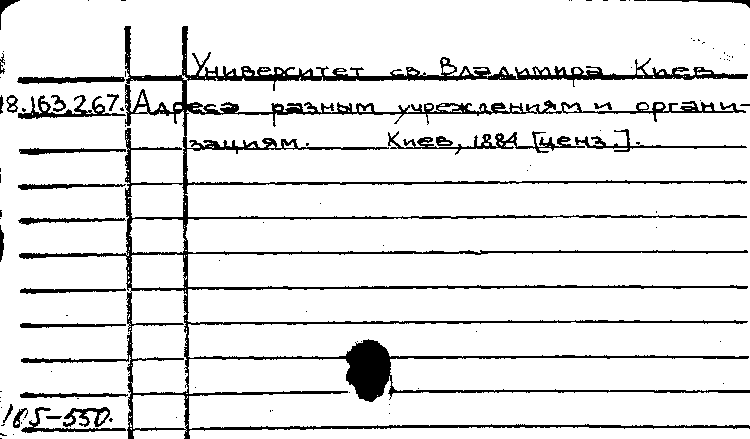 Университет св. Владимира. Киев.
18.163.267. Адреса разным учреждениям и органи-
зациям. Киев, 1884 [ценз.].
105-550.